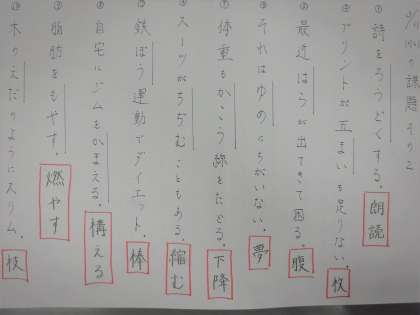 の課題 その2
① 詩をろうどくする。 朗読
② プリントが五まいも足りない。 枚
③ 最近はらが出てきて困る。 腹
④ それはゆめにちがいない。 夢
⑤ 体重もかこう線をたどる。 下降
⑥ スーツがちぢむこともある。 縮む
⑦ 鉄ぼう運動でダイエット。 棒
⑧ 自宅にジムをかまえる。 構える
⑨ 脂肪をもやす。 燃やす
⑩ 木のえだのようにスリム。 枝